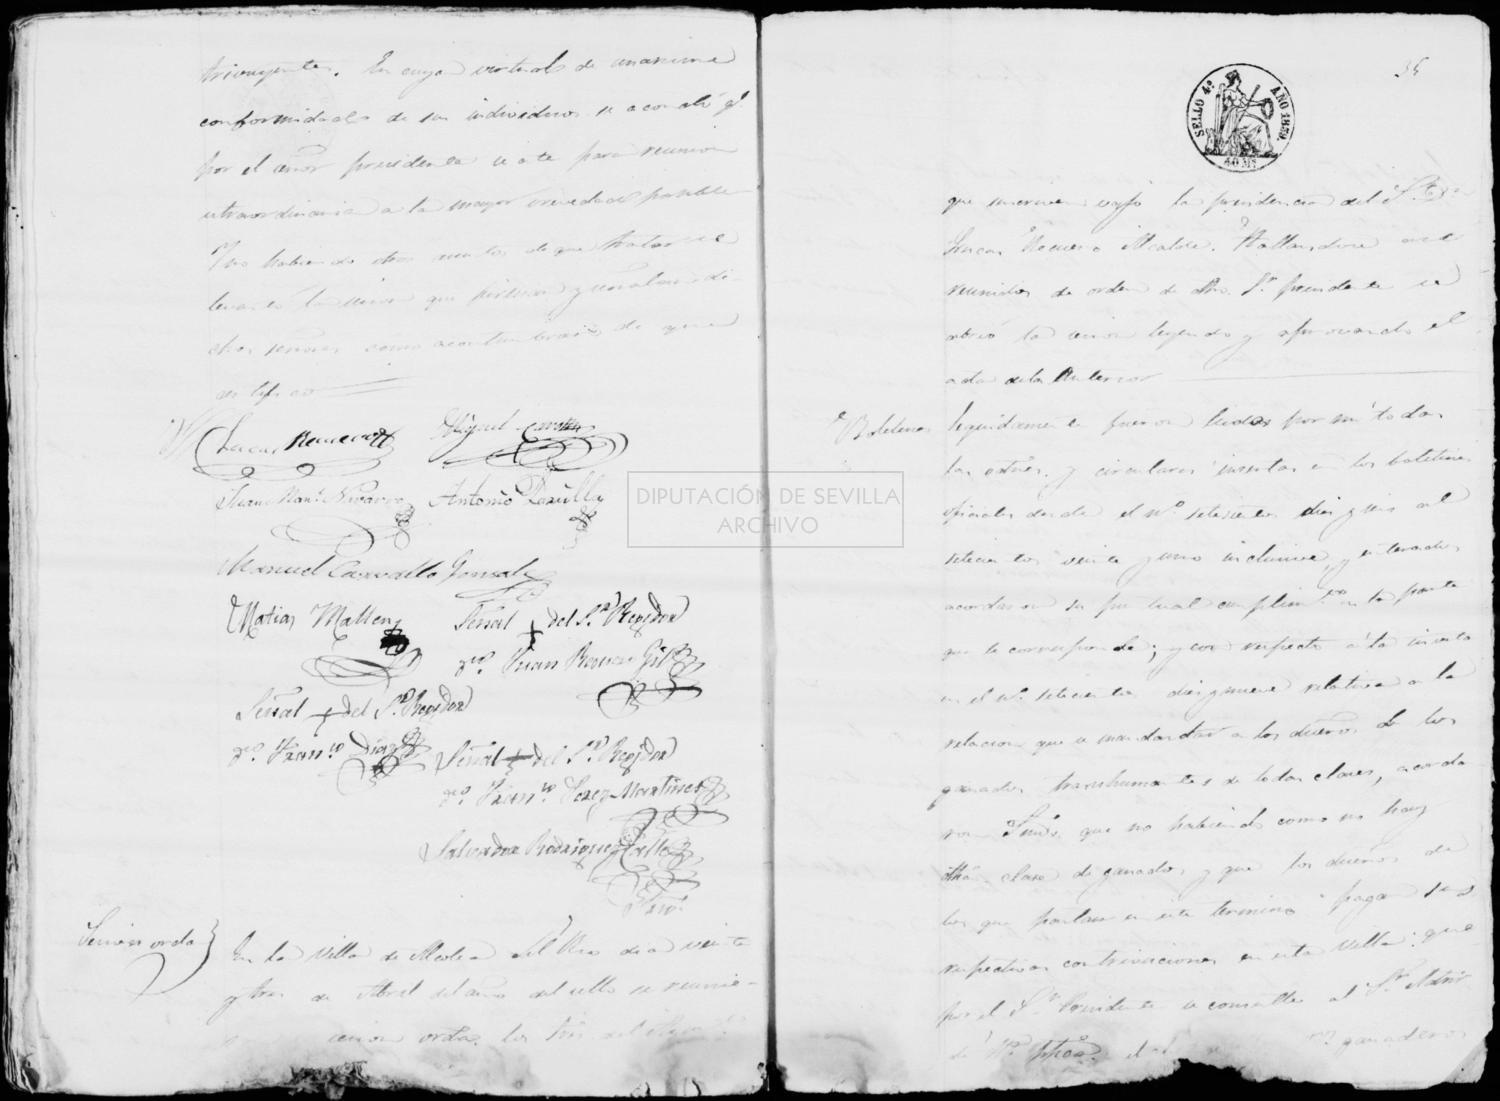 trivuyentes. En cuya virtud de unanime
conformidad de sus individuos se acordó q.e
por el señor presidente se cite para reunion
estraordinaria a la mayor brevedad posible
Y no habiendo otros asuntos de que tratar se
levantó la sesion que firman y señalan di-
chos señores como acostumbran de que
certifico
Lucas Miguel
Juan Man.l Navarro Antonio
Manuel Carvallo Gonzalez
Matias Mallen Señal + del S.r Regidor
D.n Juan Romero Gil
Señal + del S.r Regidor
D.n Fran.co Diaz Señal + del S.r Regidor
D.n Fran.co Perez Martinez
Salvador Rodriguez Calle
Srio.
Sesion orda
En la Villa de Alcolea del Rio dia veinte
y tres de Abril del año del sello se reunie-
sesion orda. los Sres. del
35
SELLO 4º AÑO 1859.
40 Ms
que suscriven vajo la presidencia del S.r D.n
Lucas Alcalde. Hallandose
reunidos de orden de dho. S.r presidente se
abrió la sesion leyendo y aprovando el
acta de la anterior
Boletines
Seguidamente fueron leidos por mi todas
las ordnes. y circulares insertas en los boletines
oficiales desde el nº. setecientos diez y seis al
setecientos veinte y uno inclusive, y enterados
acordaron su puntual cumplim.to en la parte
que le corresponde; y con respecto á la inserta
en el nº. setecientos diez y nueve relativa a la
relacion que se manda dar a los dueños de los
ganados transhumantes de todas clases, acorda
ron Smds. que no habiendo como no hay
dha. clase de ganados, y que los dueños de
los que pastan en este termino pagan sus
respectivas contrivuciones en esta Villa: que
por el S.r Presidente se consulte al S.r Admor.
de ganaderos
DIPUTACIÓN DE SEVILLA
ARCHIVO